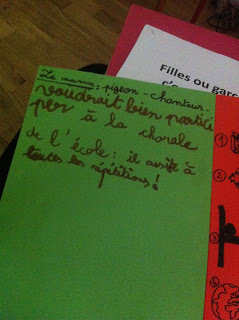 Filles ou garç
c'
Le : pigeon-chanteur.
voudrait bien partici
per à la chorale
de l'école : il assiste à
toutes les répétitions !
1
2
3